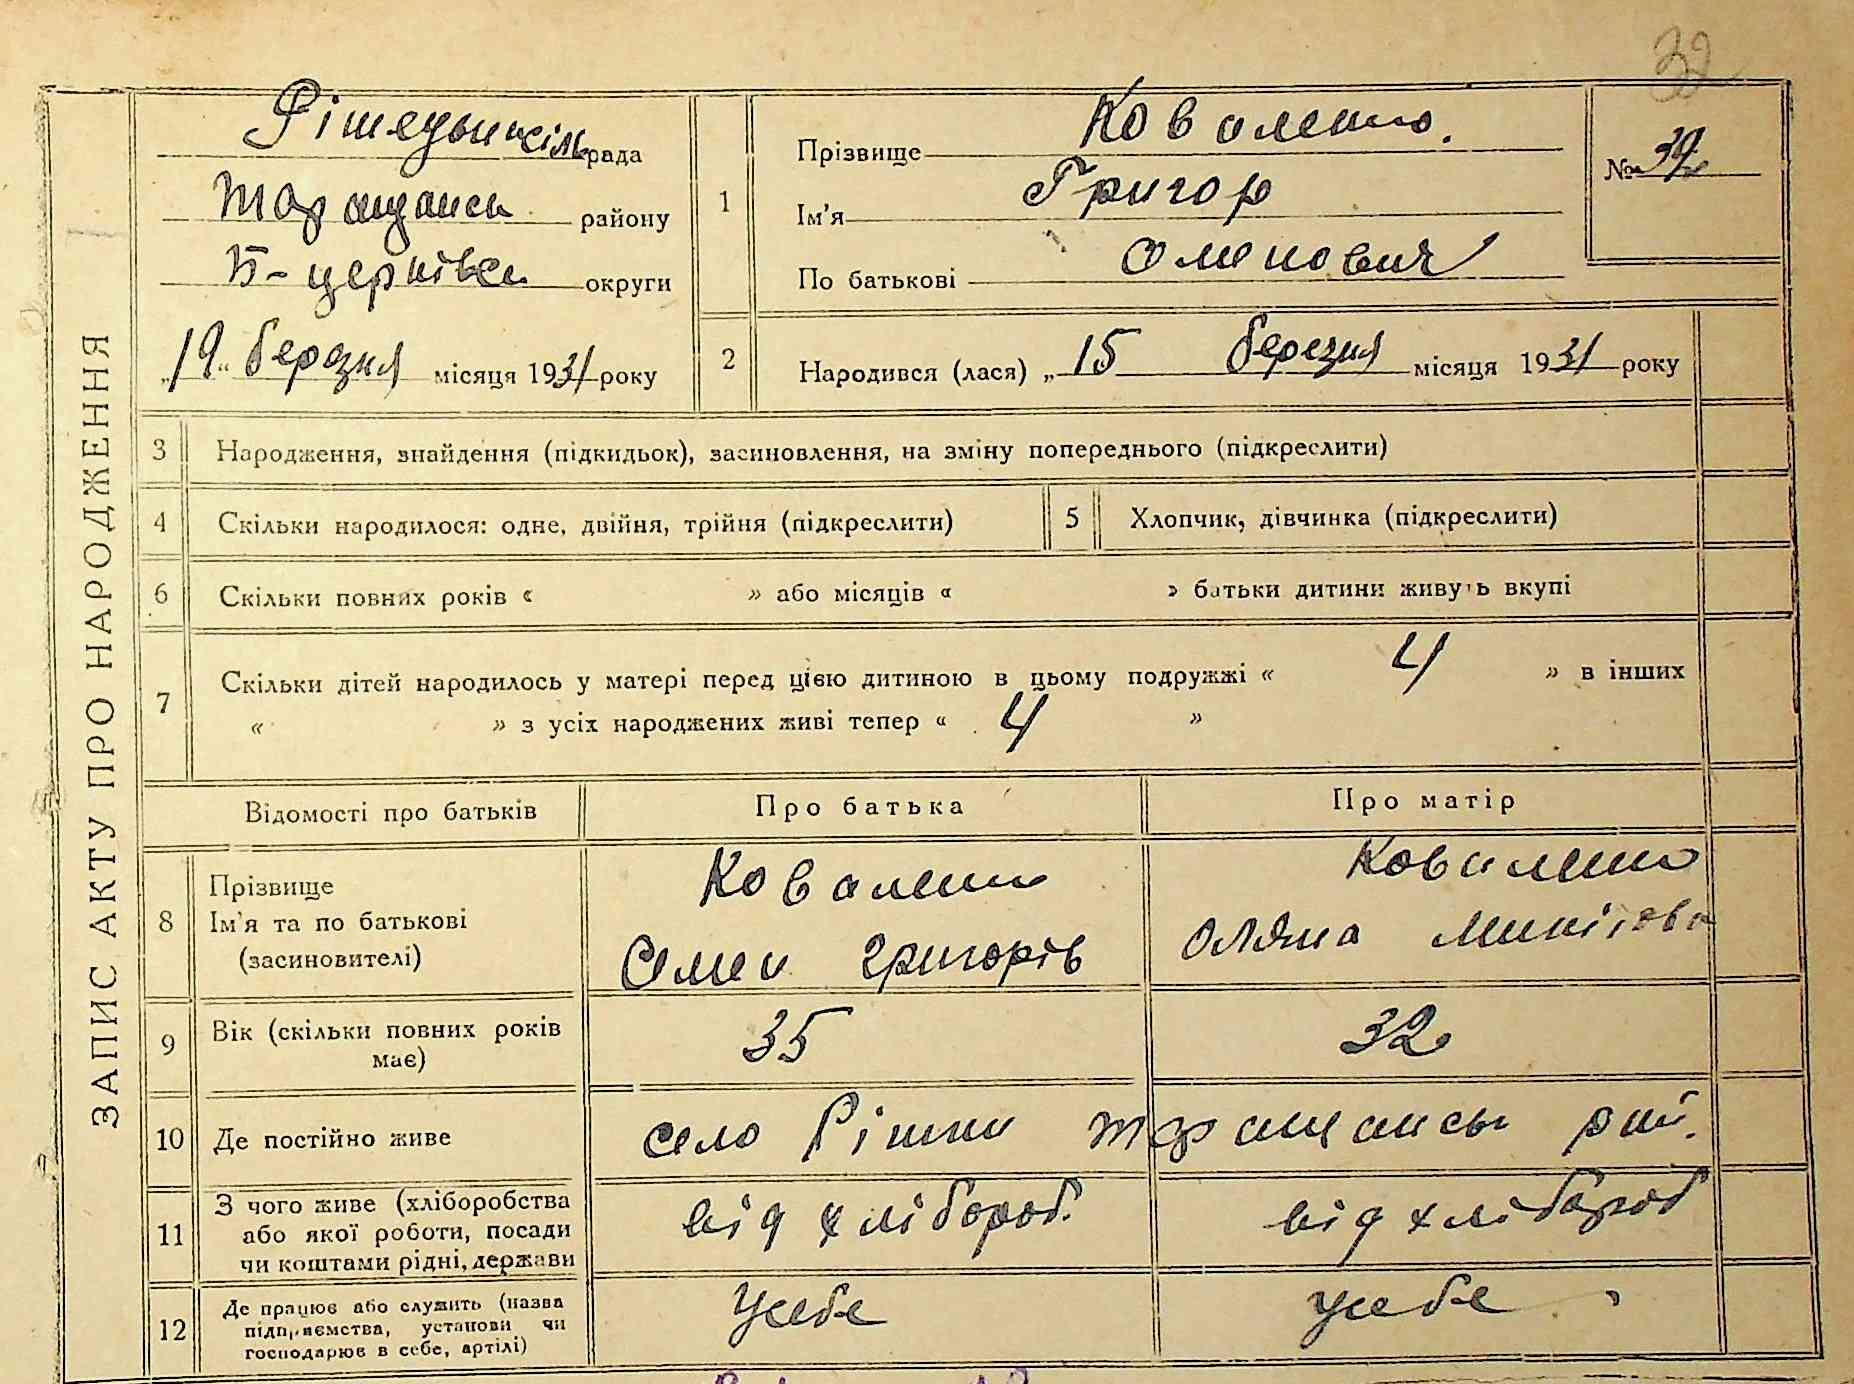 32
ЗАПИС АКТУ ПРО НАРОДЖЕННЯ
сіль рада
Таращанськ району
Б-церківськ округи
„19“ березня місяця 1931 року
1
Прізвище Коваленко.
Ім'я Григор
По батькові Семенович
№ 32
2
Народився (лася) „15 березня місяця 1931 року
3 Народження, знайдення (підкидьок), засиновлення, на зміну попереднього (підкреслити)
4 Скільки народилося: одне, двійня, трійня (підкреслити)
5 Хлопчик, дівчинка (підкреслити)
6 Скільки повних років « » або місяців « » батьки дитини живуть вкупі
7 Скільки дітей народилось у матері перед цією дитиною в цьому подружжі « 4 » в інших
« » з усіх народжених живі тепер « 4 »
Відомості про батьків Про батька Про матір
8
Прізвище
Ім'я та по батькові
(засиновителі)
Коваленко
Семен Григорів
Коваленко
9
Вік (скільки повних років
має)
35 32
10 Де постійно живе село Рішки Таращанськ рай.
11
З чого живе (хліборобства
або якої роботи, посади
чи коштами рідні, держави
від хлібороб. від хлібороб
12
Де працює або служить (назва
підприємства, установи чи
господарює в себе, артілі)
Усебе усебе